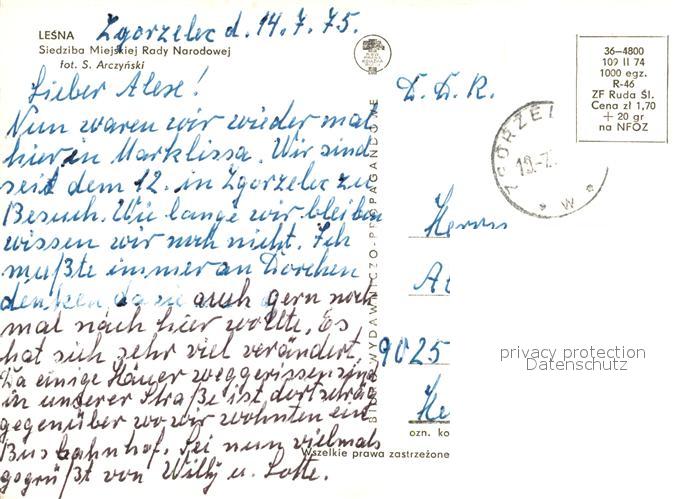 LEŚNA
Siedziba Miejskiej Rady Narodowej
fot. S. Arczyński
Zgorzelec d. 14.7.75.
Lieber Alex!
Nun waren wir wieder mal
hier in Marklissa. Wir sind
seit dem 12. in Zgorzelec zu
Besuch. Wie lange wir bleiben
wissen wir noch nicht. Ich
mußte immer an Dorchen
denken, da sie auch gern noch
mal nach hier wollte. Es
hat sich sehr viel verändert.
Da einige Häuser weggerissen sind
in unserer Straße ist dort schräg
gegenüber wo wir wohnten ein
Busbahnhof. Sei nun vielmals
gegrüßt von Willy u. Lotte.
BIURO WYDAWNICZO-PROPAGANDOWE
D. D. R.
36-4800
109 II 74
1000 egz.
R-46
ZF Ruda Śl.
Cena zł 1,70
+ 20 gr
na NFOZ
ZGORZEL
W
Herrn
9025
privacy protection
Datenschutz
ozn. ko
Wszelkie prawa zastrzeżone